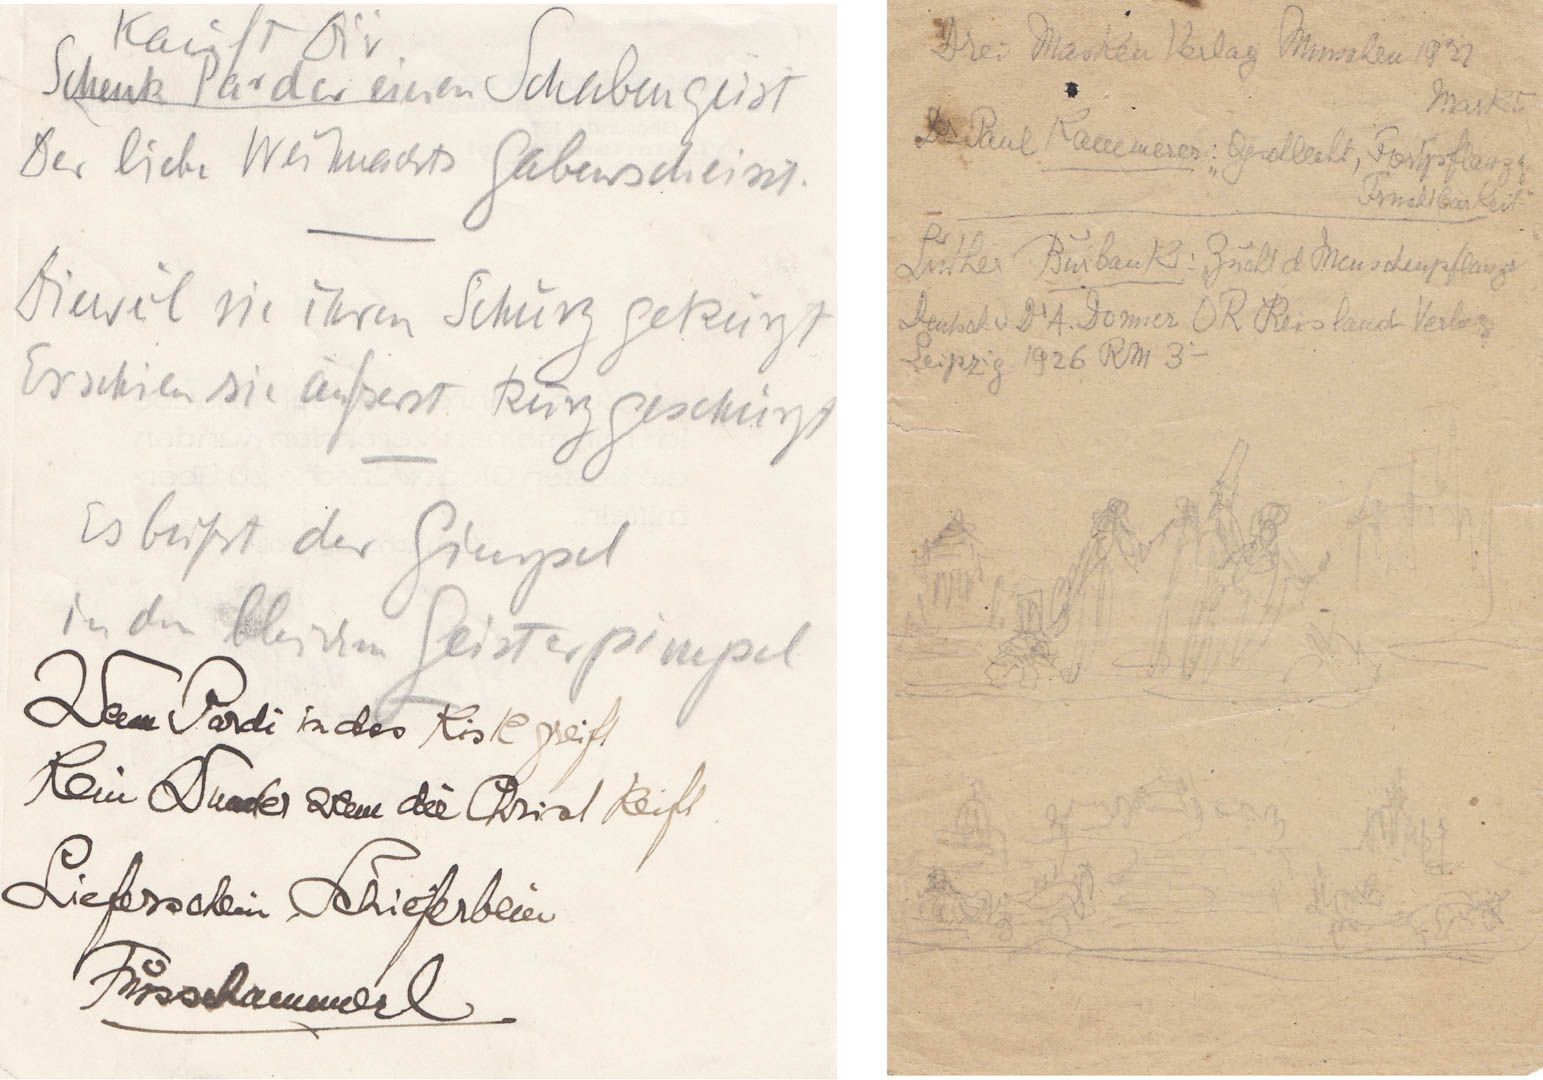 Kauft Dir
Schenk Parder einen Schabengeist
Der liebe Weihnachts Gabenscheisst.
Dieweil sie ihren Schurz gekürzt
Erschien sie äußerst kurzgeschürzt
Es büßt der Gimpel
in den bleichen Geisterpimpel
Wenn Pardi in das Kisk greift
Kein Wunder wenn die Christl keift
Lieferschein Schieferbein
Fusskammerl
Drei Masken Verlag München 1921
Mark
Dr Paul Kammerer: „Geschlecht, Fortpflanzg
Fruchtbarkeit"
Luther Burbank: „Zucht d Menschenpflanze
Deutsch v Dr A. Donner OR Reisland Verlag
Leipzig 1926 RM 3-